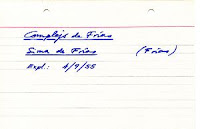 Complejo de Frías
Sima de Frías (Frías)
Expl: 4/9/55